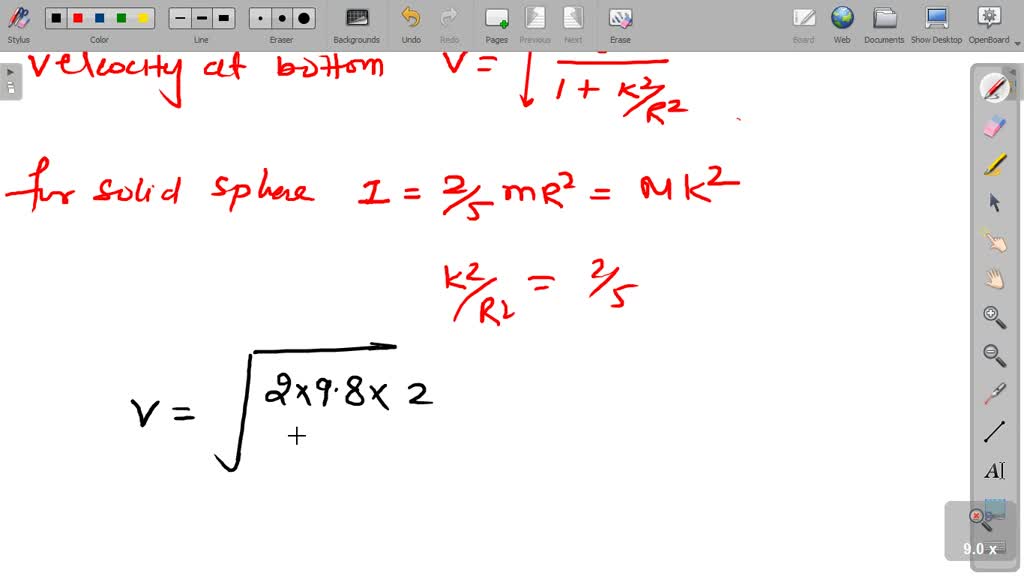 Stylus Color Line Eraser Backgrounds Undo Redo Pages Previous Next Erase Board Web Documents Show Desktop OpenBoard
velocity at bottom V = √ 1 + K²/R²
for solid sphere I = 2/5 mR² = MK²
K²/R² = 2/5
V = √2×9.8× 2
AI
9.0 x